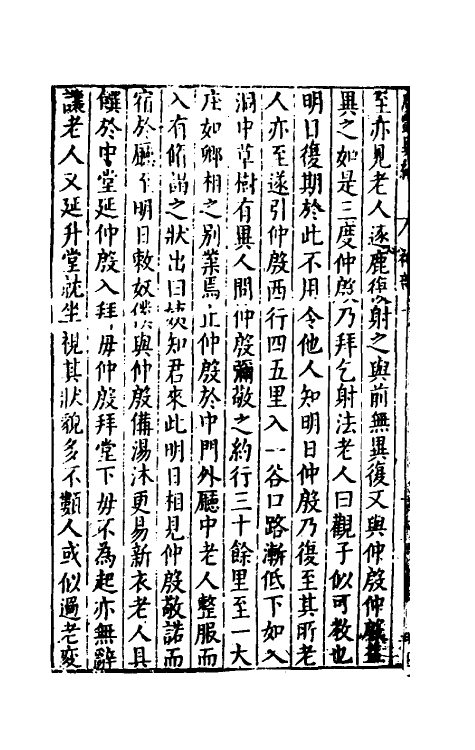 至亦見老人逐鹿復射之與前無異復又與仲殷仲殷益
異之如是三度仲殷乃拜乞射法老人曰觀子似可教也
明日復期於此不用令他人知明日仲殷乃復至其所老
人亦至遂引仲殷西行四五里入一谷口路漸低下如入
洞中草樹有異人間仲殷彌敬之約行三十餘里至一大
庄如卿相之別業焉止仲殷於中門外廳中老人整服而
入有脩謁之狀出曰姨知君來此明日相見仲殷敬諾而
宿於廳至明日敕奴僕與仲殷備湯沐更易新衣老人具
饌於中堂延仲殷入拜毋仲殷拜堂下毋不為起亦無辭
讓老人又延升堂就坐視其狀貌多不類人或似過老變